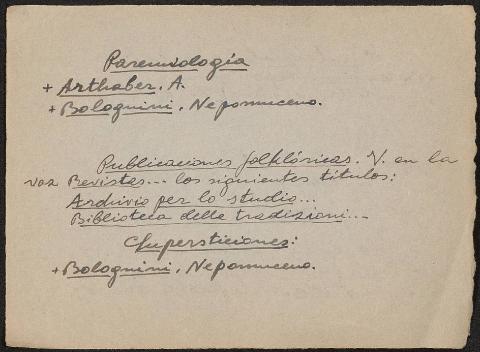 Paremiología
+ Arthaber, A.
+ Bolognini, Nepomuceno.
Publicaciones folklóricas. V. en la
voz Revistas... los siguientes títulos:
Archivio per lo studio...
Biblioteca delle tradizioni...
Supersticiones:
+ Bolognini, Nepomuceno.